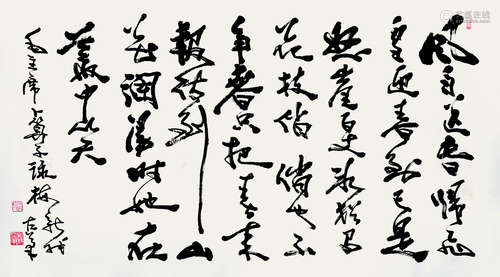 风雨送春归飞
雪迎春到已是
悬崖百丈冰犹有
花枝俏俏也不
争春只把春来
報待到山
花烂漫时她在
丛中笑
毛主席卜算子詠梅